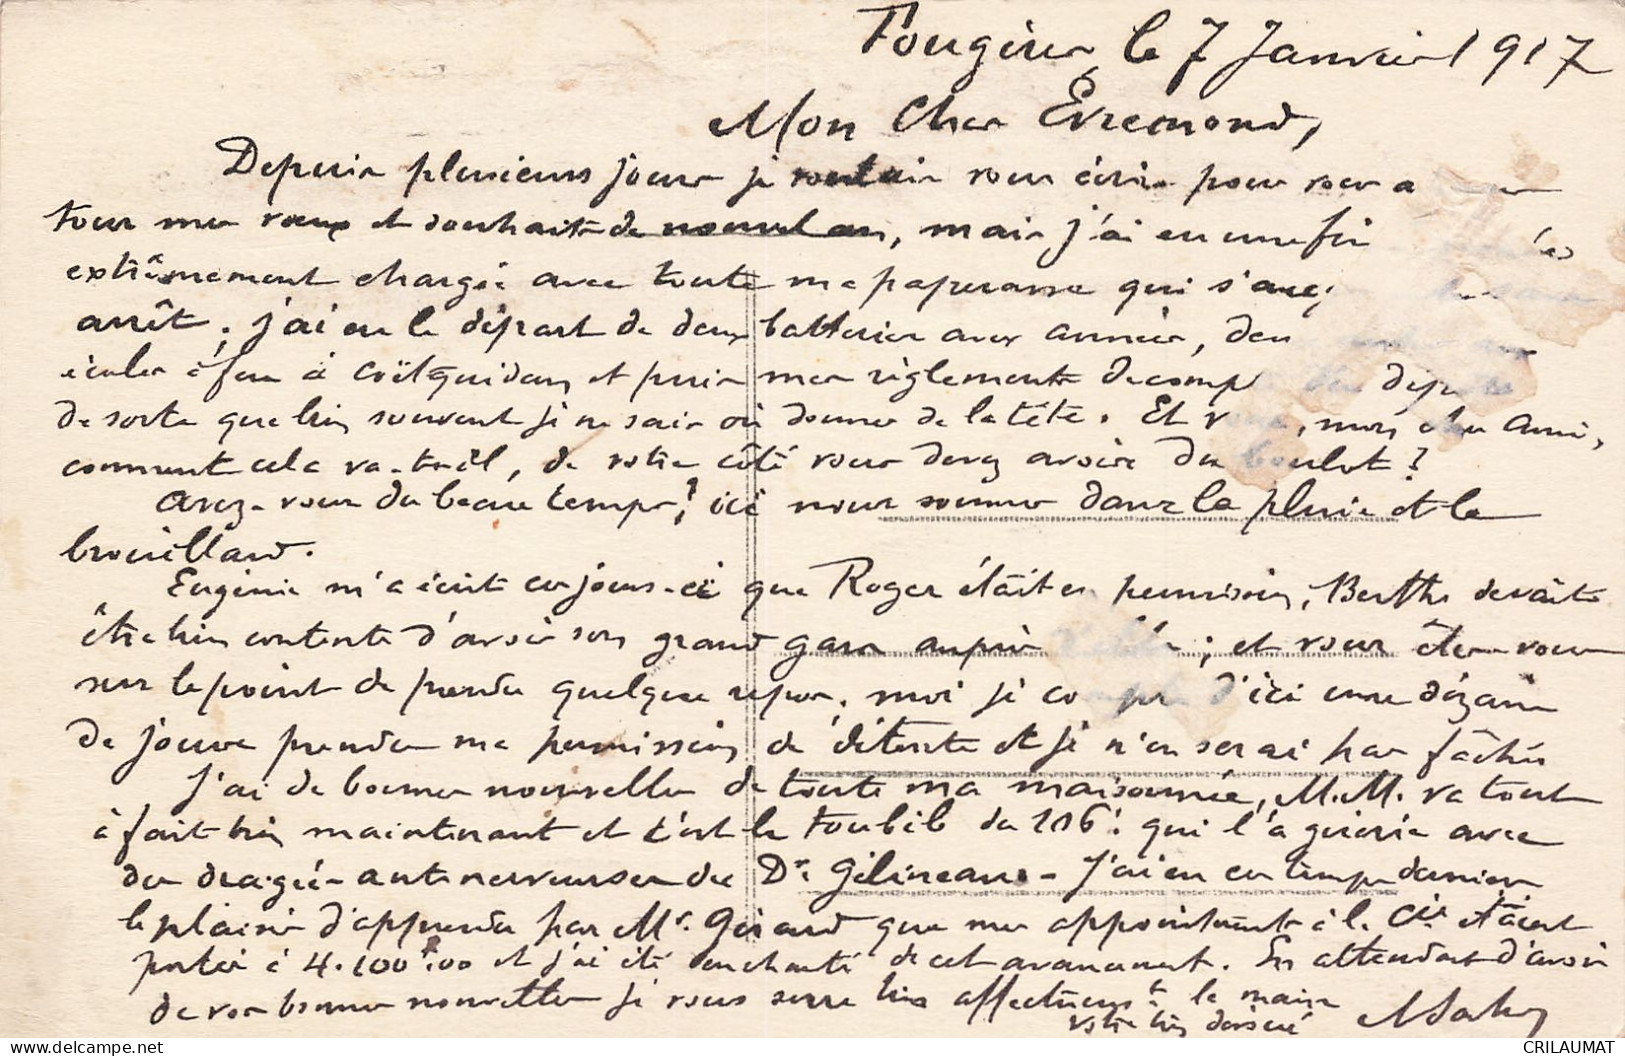 Fougères, le 7 Janvier 1917
Mon Cher Evremond,
Depuis plusieurs jours je voulais vous écrire pour vous a
tous mes vœux et souhaits de nouvel an, mais j'ai eu une fin
extrêmement chargée avec toute ma paperasse qui s'au
arrêt. j'ai eu le départ de deux batteries aux armées, des
écoles à feu à Coëtquidan, et puis mes règlements de compt
de sorte que bien souvent je ne sais où donner de la tête. Et vous, mon cher Ami,
comment cela va-t-il, de votre côté vous devez avoir du boulot?
Avez-vous du beau temps? ici nous sommes dans la pluie et le
brouillard.
Eugénie m'a écrit ces jours-ci que Roger était en permission, Berthe devait
être bien contente d'avoir son grand gars auprès d'elle; et vous êtes vous
sur le point de prendre quelque repos. moi je compte d'ici une dizaine
de jours prendre ma permission de détente et je n'en serai pas fâché.
J'ai de bonnes nouvelles de toute ma maisonnée, M.M. va tout
à fait bien maintenant et c'est le toubib du 106è qui l'a guérie avec
des dragées antinerveuses du Dr Gélineau - J'ai eu ces temps derniers
le plaisir d'apprendre par Mr. Gérard que mes appointements à la Cie étaient
portés à 4.100f00 et j'ai été enchanté de cet avancement. En attendant d'avoir
de vos bonnes nouvelles je vous serre bien affectueusт la main
votre bien dévoué
CRILAUMAT